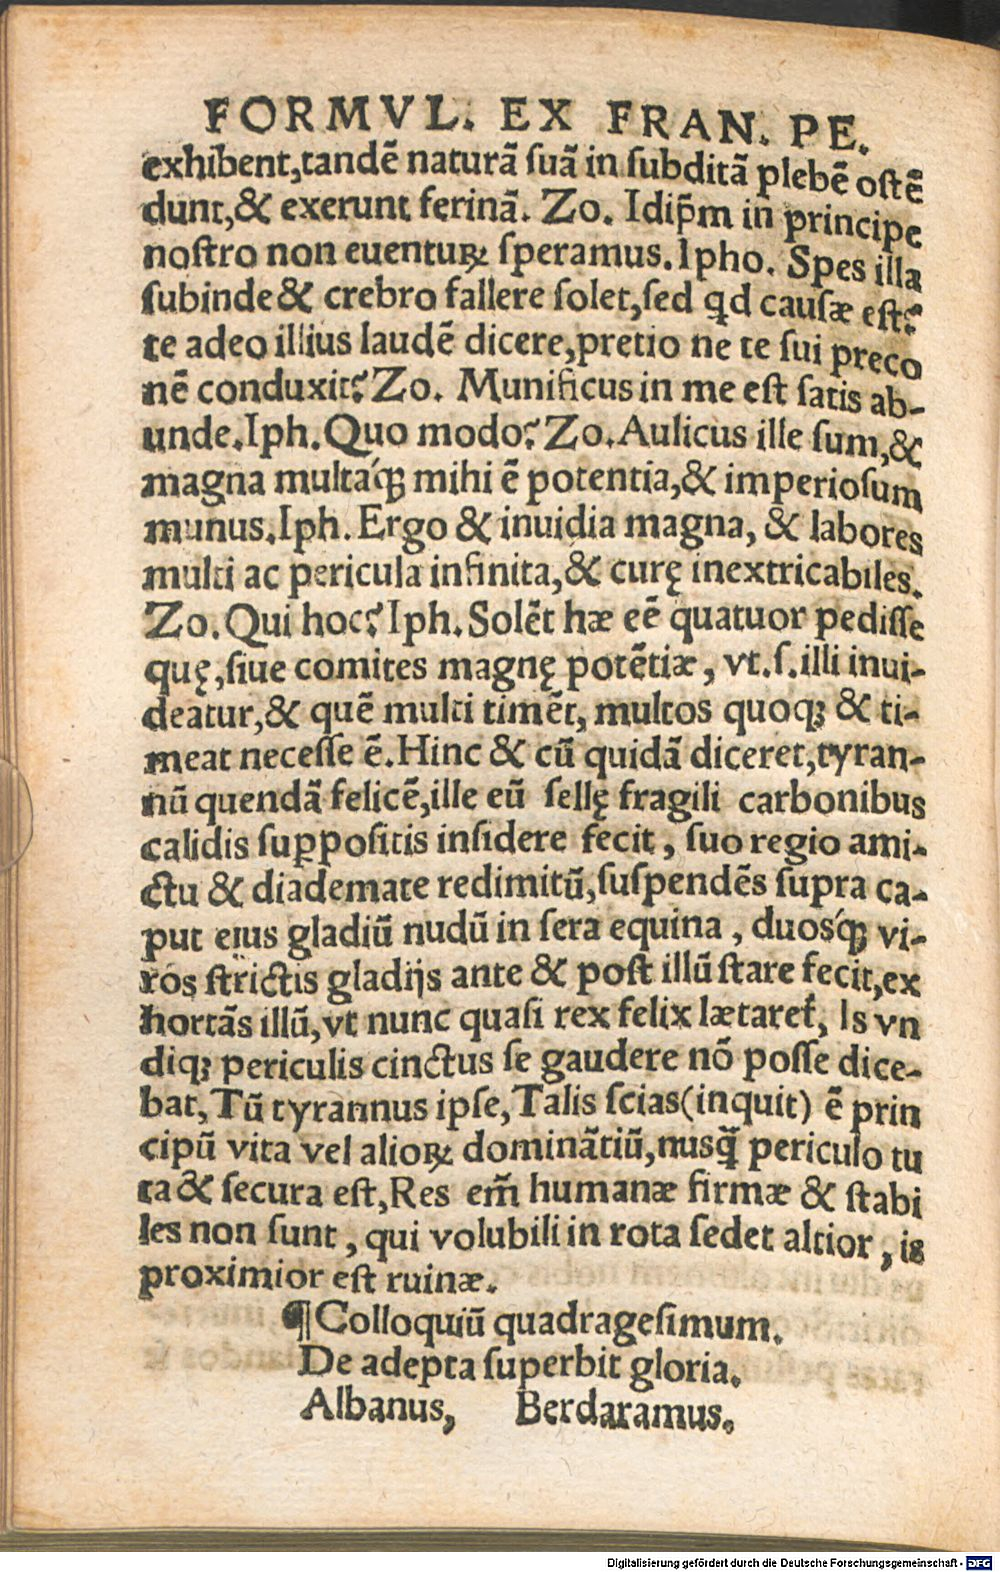 FORMVL. EX FRAN. PE.
exhibent,tandē naturā ſuā in ſubditā plebē oſtē
dunt,& exerunt ferinā. Zo. Idip̄m in principe
noſtro non euentuꝝ ſperamus. Ipho. Spes illa
ſubinde & crebro fallere ſolet,ſed qd cauſæ eſt?
te adeo illius laudē dicere,pretio ne te ſui preco
nē conduxit? Zo. Munificus in me eſt ſatis ab-
unde. Iph. Quo modo? Zo. Aulicus ille ſum,&
magna multáꝗ mihi ē potentia,& imperioſum
munus. Iph. Ergo & inuidia magna, & labores
multi ac pericula infinita,& curę inextricabiles.
Zo. Qui hoc? Iph. Solēt hæ eē quatuor pediſſe
quę,ſiue comites magnę potētiæ, vt.ſ.illi inui-
deatur,& quē multi timēt, multos quoqꝫ & ti-
meat neceſſe ē. Hinc & cū quidā diceret,tyran-
nū quendā felicē,ille eū ſellę fragili carbonibus
calidis ſuꝑpoſitis inſidere fecit, ſuo regio ami-
ctu & diademate redimitū,ſuſpendēs ſupra ca-
put eius gladiū nudū in ſera equina, duosꝗ́ vi-
ros ſtrictis gladijs ante & poſt illū ſtare fecit,ex
hortās illū,vt nunc quaſi rex felix lætaret᷑, Is vn
diqꝫ periculis cinctus ſe gaudere nō poſſe dice-
bat, Tū tyrannus ipſe, Talis ſcias(inquit) ē prin
cipū vita vel alioꝝ dominātiū,nusꝗ̄ periculo tu
ta & ſecura eſt, Res em̄ humanæ firmæ & ſtabi
les non ſunt, qui volubili in rota ſedet altior, is
proximior eſt ruinæ.
¶Colloquiū quadrageſimum.
De adepta ſuperbit gloria.
Albanus, Berdaramus.
Digitalisierung gefördert durch die Deutsche Forschungsgemeinschaft - DFG